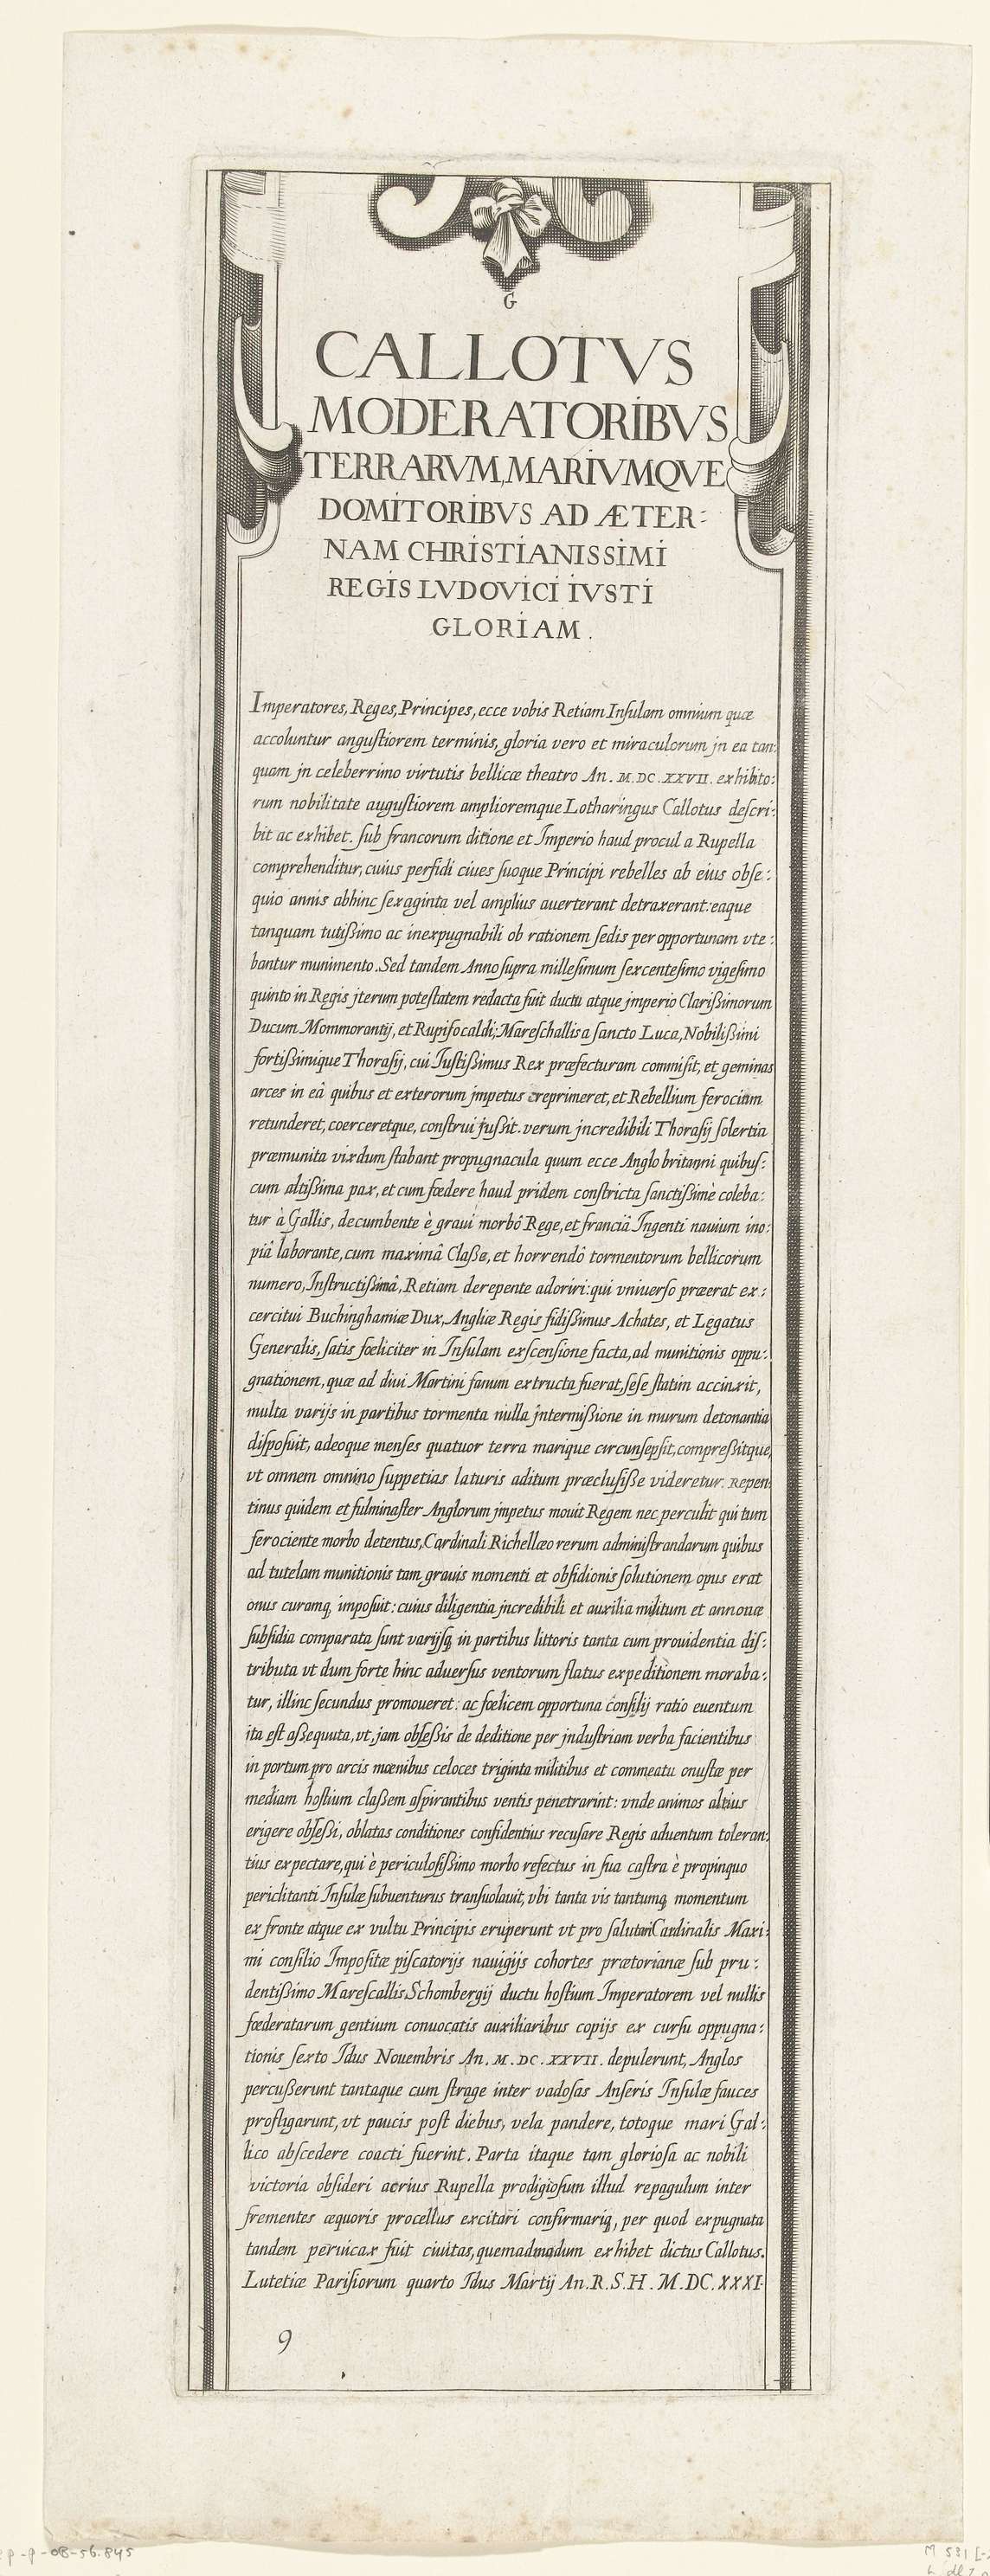 G
CALLOTVS
MODERATORIBVS
TERRARVM, MARIVMQVE
DOMITORIBVS AD ÆTER:
NAM CHRISTIANISSIMI
REGIS LVDOVICI IVSTI
GLORIAM.
Imperatores, Reges, Principes, ecce vobis Retiam Insulam omnium quæ
accoluntur angustiorem terminis, gloria vero et miraculorum jn ea tan:
quam jn celeberrimo virtutis bellicæ theatro An. M.DC.XXVII. exhibito:
rum nobilitate augustiorem amplioremque Lotharingus Callotus descri:
bit ac exhibet. sub francorum ditione et Imperio haud procul a Rupella
comprehenditur, cuius perfidi ciues suoque Principi rebelles ab eius obse:
quio annis abhinc sexaginta vel amplius auerterant detraxerant: eaque
tanquam tutißimo ac inexpugnabili ob rationem sedis peropportunam vte:
bantur munimento. Sed tandem Anno supra millesimum sexcentesimo vigesimo
quinto in Regis jterum potestatem redacta fuit ductu atque jmperio Clarißimorum
Ducum Mommorantij, et Rupifocaldi; Mareschallis a sancto Luca, Nobilißimi
fortißimique Thorasij, cui Iustißimus Rex præfecturam commisit, et geminas
arces in eâ quibus et exterorum jmpetus reprimeret, et Rebellium ferociam
retunderet, coerceretque, construi jußit. verum jncredibili Thorasij solertia
præmunita vixdum stabant propugnacula quum ecce Anglobritanni quibus:
cum altißima pax, et cum fœdere haud pridem constricta sanctißimè coleba:
tur à Gallis, decumbente è graui morbô Rege, et franciâ Ingenti nauium ino:
piâ laborante, cum maximâ Claße, et horrendô tormentorum bellicorum
numero, Instructißimâ, Retiam derepente adoriri: qui vniuerso præerat ex:
cercitui Buchinghamiæ Dux, Angliæ Regis fidißimus Achates, et Legatus
Generalis, satis fœliciter in Insulam exscensione facta, ad munitionis oppu:
gnationem, quæ ad diui Martini fanum extructa fuerat, sese statim accinxit,
multa varijs in partibus tormenta nulla jntermißione in murum detonantia
disposuit, adeoque menses quatuor terra marique circunsepsit, compreßitque,
vt omnem omnino suppetias laturis aditum præclusiße videretur. Repen:
tinus quidem et fulminaster Anglorum jmpetus mouit Regem nec perculit qui tum
ferociente morbo detentus, Cardinali Richellæo rerum administrandarum quibus
ad tutelam munitionis tam grauis momenti et obsidionis solutionem opus erat
onus curamq, imposuit: cuius diligentia jncredibili et auxilia militum et annonæ
subsidia comparata sunt varijsq, in partibus littoris tanta cum prouidentia dis:
tributa vt dum forte hinc aduersus ventorum flatus expeditionem moraba:
tur, illinc secundus promoueret: ac fœlicem opportuna consilij ratio euentum
ita est aßequuta, vt, jam obseßis de deditione per jndustriam verba facientibus
in portum pro arcis mœnibus celoces triginta militibus et commeatu onustæ per
mediam hostium claßem aspirantibus ventis penetrarint: vnde animos altius
erigere obseßi, oblatas conditiones confidentius recusare Regis aduentum toleran:
tius expectare, qui è periculosißimo morbo refectus in sua castra è propinquo
periclitanti Insulæ subuenturus transuolauit, vbi tanta vis tantumq momentum
ex fronte atque ex vultu Principis eruperunt vt pro salutari Cardinalis Maxi:
mi consilio Impositæ piscatorijs nauigijs cohortes prætorianæ sub pru:
dentißimo Marescallis Schombergij ductu hostium Imperatorem vel nullis
fœderatarum gentium conuocatis auxiliaribus copijs ex cursu oppugna:
tionis sexto Idus Nouembris An. M.DC.XXVII. depulerunt, Anglos
percußerunt tantaque cum strage inter vadosas Anseris Insulæ fauces
profligarunt, vt paucis post diebus, vela pandere, totoque mari Gal:
lico abscedere coacti fuerint. Parta itaque tam gloriosa ac nobili
victoria obsideri acrius Rupella prodigiosum illud repagulum inter
frementes æquoris procellas excitari confirmariq, per quod expugnata
tandem peruicax fuit ciuitas, quemadmodum exhibet dictus Callotus.
Lutetiæ Parisiorum quarto Idus Martij An. R.S.H. M.DC.XXXI.
9
p-p-OB-56.845
M 531